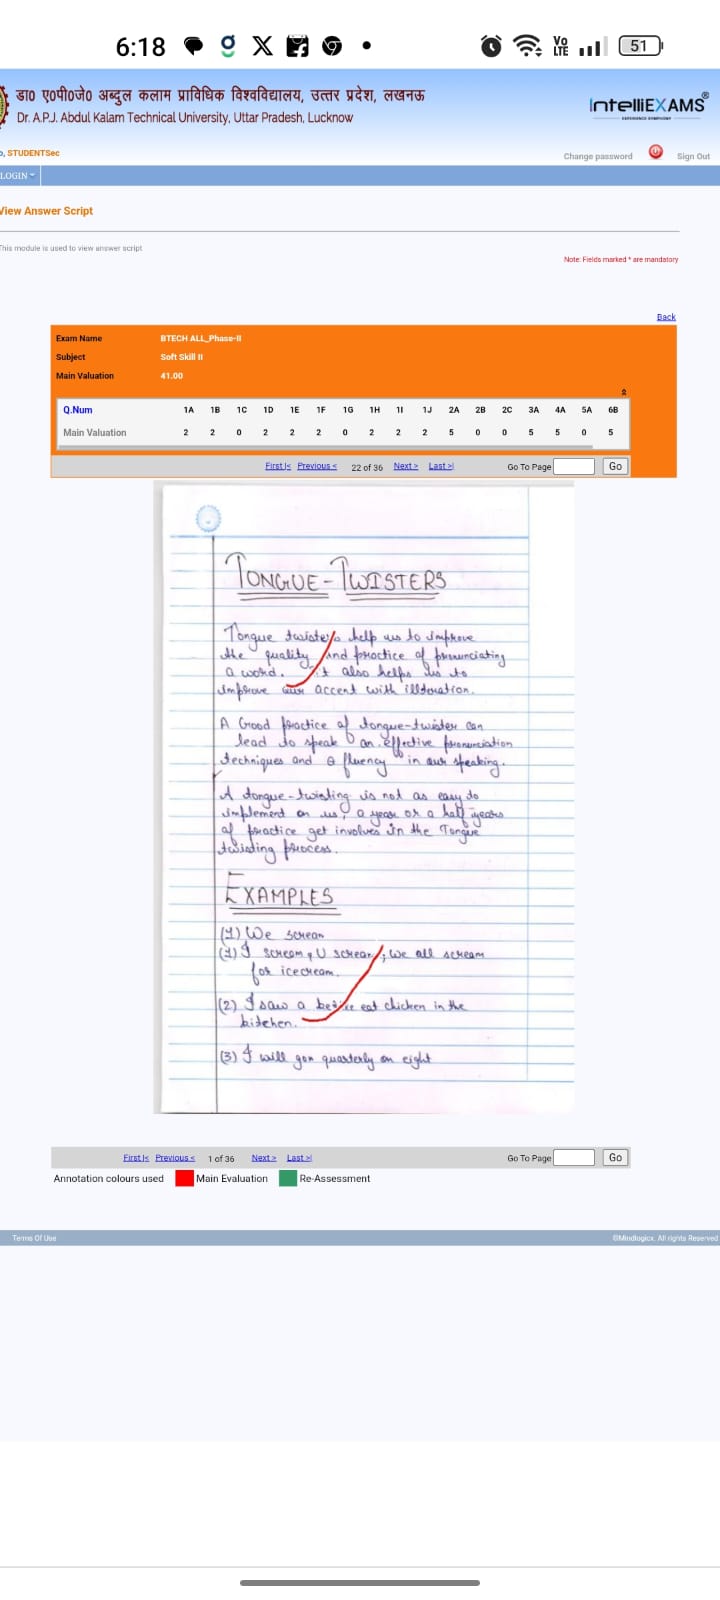 6:18
Vo LTE
51
डा0 ए0पी0जे0 अब्दुल कलाम प्राविधिक विश्वविद्यालय, उत्तर प्रदेश, लखनऊ
Dr. A.P.J. Abdul Kalam Technical University, Uttar Pradesh, Lucknow
IntelliEXAMS®
, STUDENTSec
Change password
Sign Out
LOGIN
View Answer Script
This module is used to view answer script
Note: Fields marked * are mandatory
Back
Exam Name BTECH ALL_Phase-II
Subject Soft Skill II
Main Valuation 41.00
Q.Num 1A 1B 1C 1D 1E 1F 1G 1H 1I 1J 2A 2B 2C 3A 4A 5A 6B
Main Valuation 2 2 0 2 2 2 0 2 2 2 5 0 0 5 5 0 5
First|< Previous < 22 of 36 Next > Last >| Go To Page Go
TONGUE-TWISTERS
Tongue twisters help us to improve
the quality and practice of pronunciating
a word. It also helps us to
improve our accent with
A Good practice of tongue-twister can
lead to speak an effective pronunciation
techniques and a fluency in our speaking.
A tongue-twisting is not as easy to
implement on us, a year or a half years
of practice get involves in the Tongue
twisting process.
EXAMPLES
(1) We scream
(1) I scream, U scream; We all scream
for icecream.
(2) I saw a eat chicken in the
kitchen.
(3) I will gon quarterly on eight
First|< Previous < 1 of 36 Next > Last >| Go To Page Go
Annotation colours used Main Evaluation Re-Assessment
Terms Of Use
©Mindlogicx. All rights Reserved